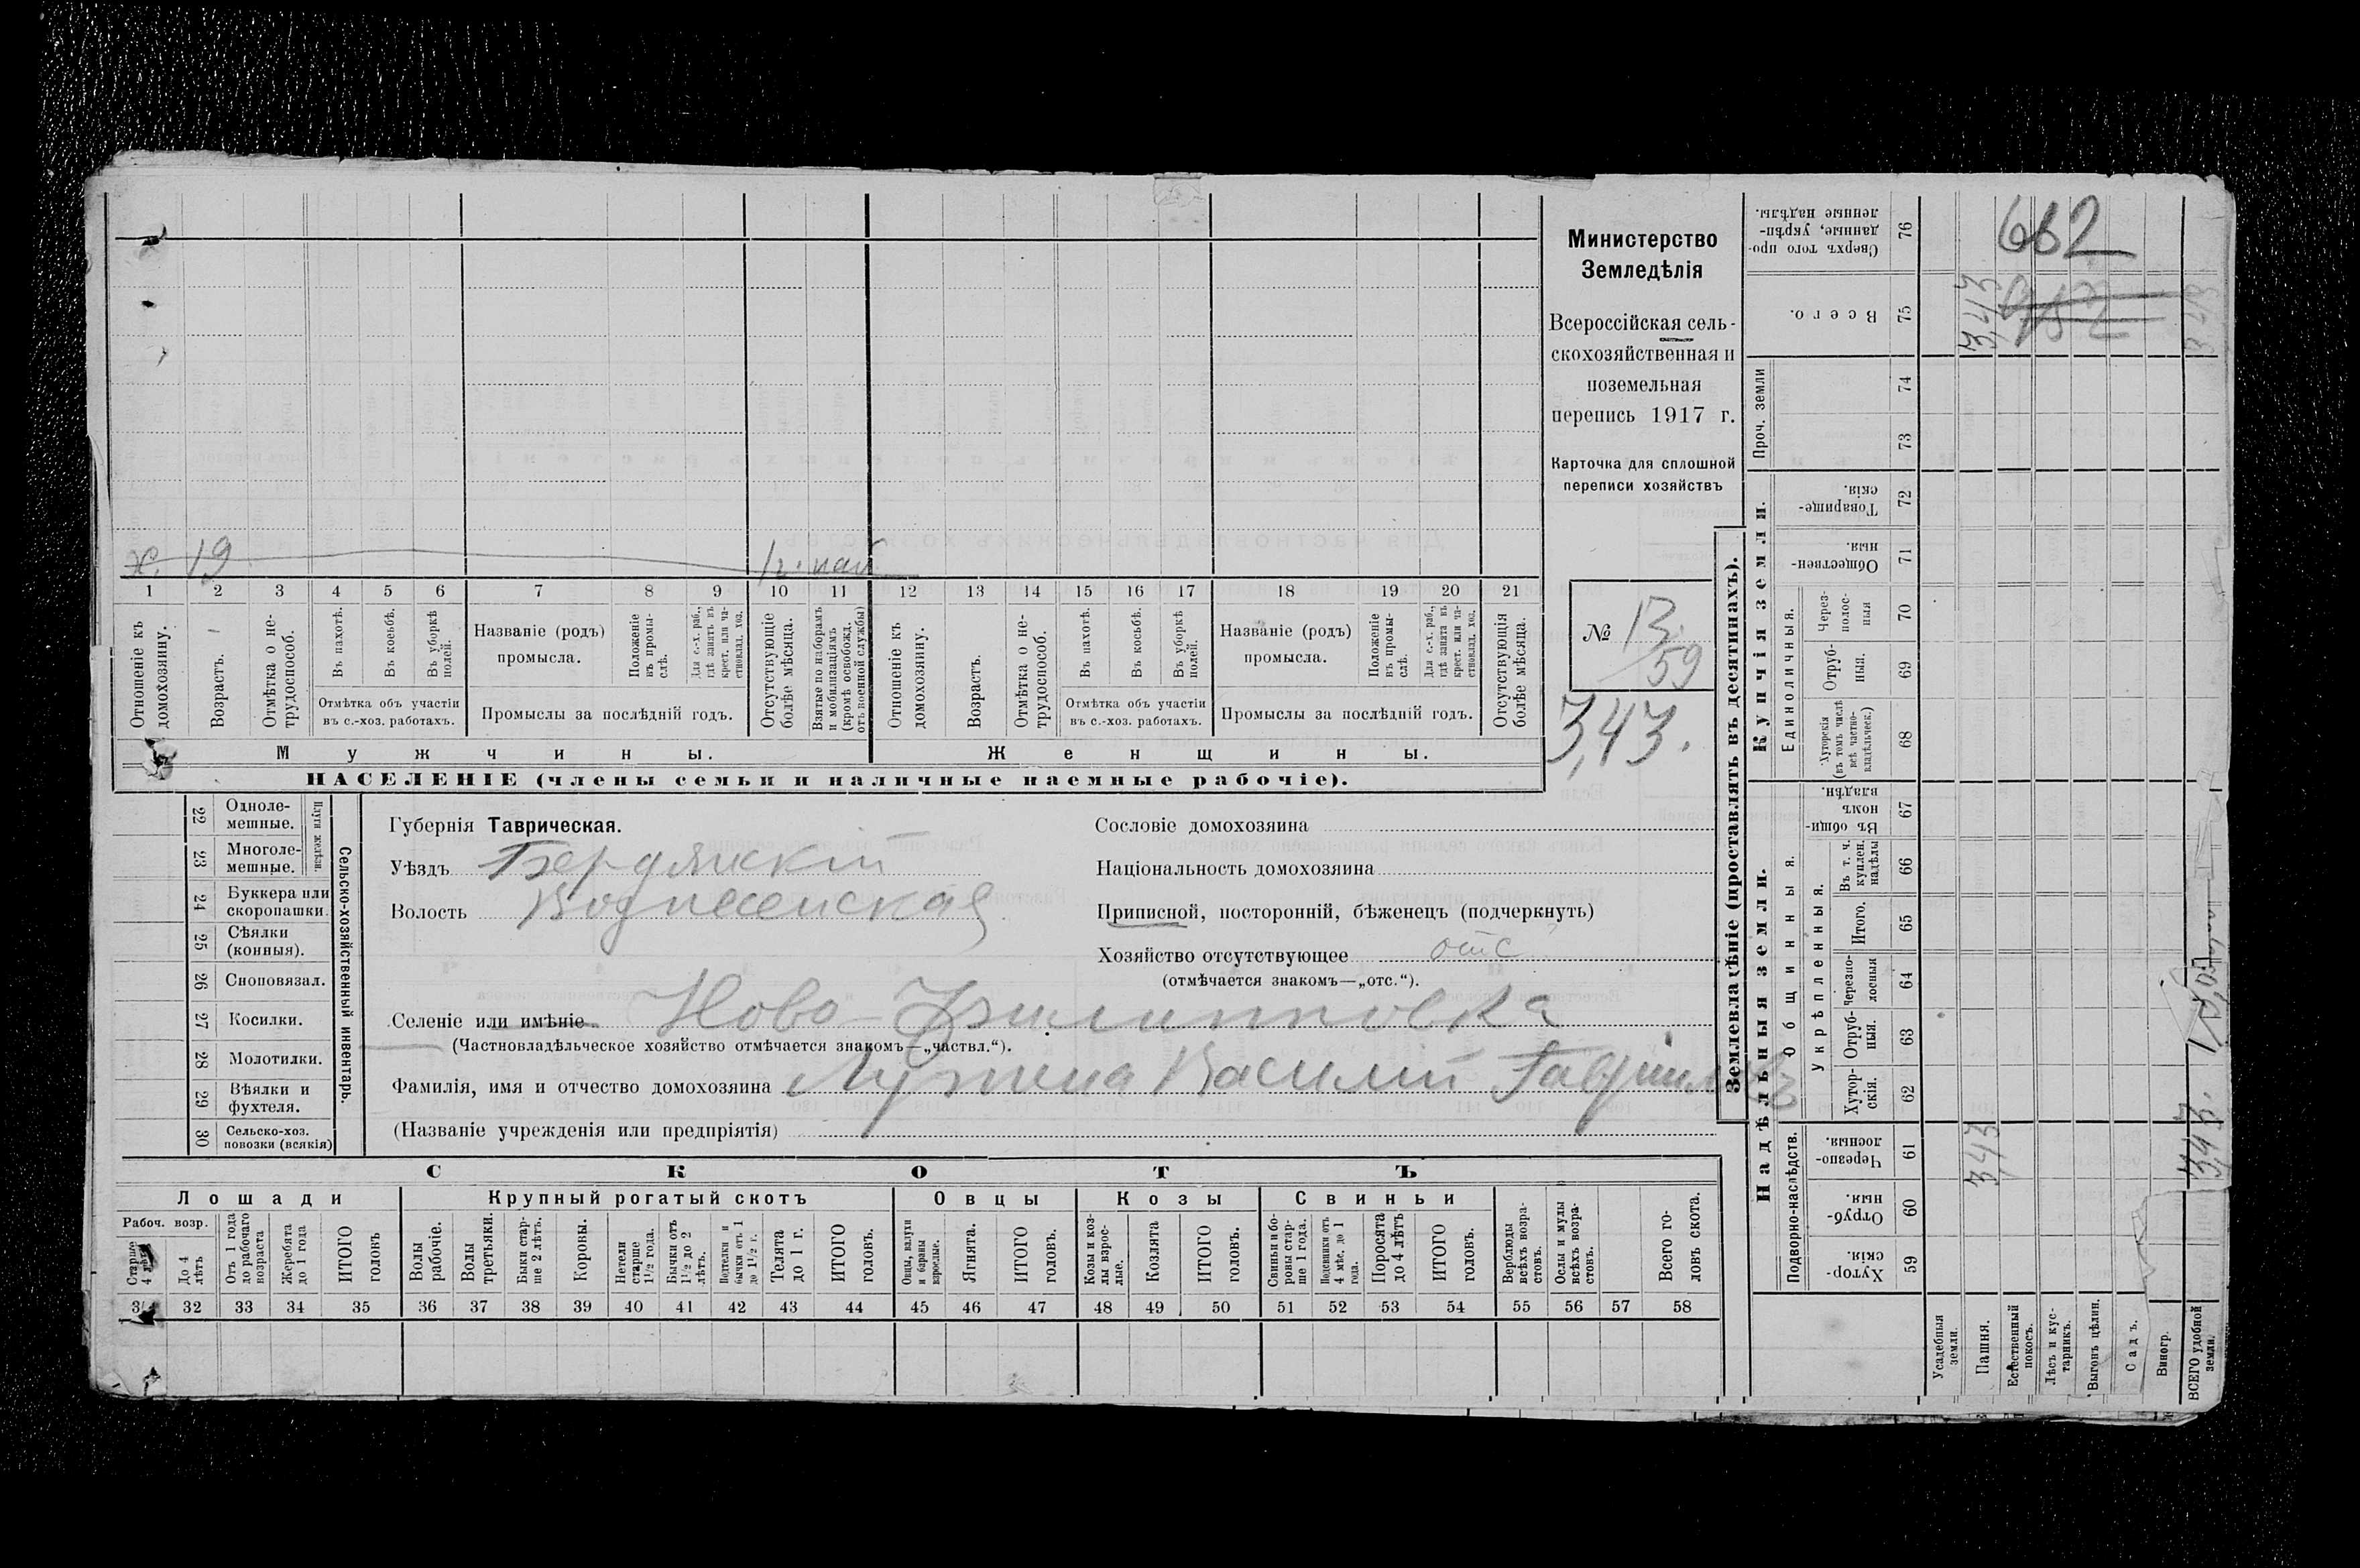 х. 19 1 г. наб
1 2 3 4 5 6 7 8 9 10 11 12 13 14 15 16 17 18 19 20 21
Отношеніе къ домохозяину.
Возрастъ.
Отмѣтка о нетрудоспособ.
Въ пахотѣ.
Въ косьбѣ.
Въ уборкѣ полей.
Отмѣтка объ участіи
въ с.-хоз. работахъ.
Названіе (родъ)
промысла.
Положеніе въ промыслѣ.
Для с.-х. раб., гдѣ занятъ въ крест. или частновлад. хоз.
Промыслы за послѣдній годъ.
Отсутствующіе болѣе мѣсяца.
Взятые по наборамъ и мобилизаціямъ (кромѣ освобожд. отъ военной службы)
Отношеніе къ домохозяину.
Возрастъ.
Отмѣтка о нетрудоспособ.
Въ пахотѣ.
Въ косьбѣ.
Въ уборкѣ полей.
Отмѣтка объ участіи
въ с.-хоз. работахъ.
Названіе (родъ)
промысла.
Положеніе въ промыслѣ.
Для с.-х. раб., гдѣ занята въ крест. или частновлад. хоз.
Промыслы за послѣдній годъ.
Отсутствующія болѣе мѣсяца.
Мужчины. Женщины.
НАСЕЛЕНІЕ (члены семьи и наличные наемные рабочіе).
Министерство
Земледѣлія
Всероссійская сель-
скохозяйственная и
поземельная
перепись 1917 г.
Карточка для сплошной
переписи хозяйствъ
№ 13
59
3,43.
22 Одноле-
мешные.
23 Многоле-
мешные.
Плуги желѣзн.
24 Буккера или
скоропашки.
25 Сѣялки
(конныя).
26 Сноповязал.
27 Косилки.
28 Молотилки.
29 Вѣялки и
фухтеля.
30 Сельско-хоз.
повозки (всякія)
Сельско-хозяйственный инвентарь.
Губернія Таврическая.
Уѣздъ Бердянскій
Волость Вознесенская
Селеніе или имѣніе Ново-Филипповка
(Частновладѣльческое хозяйство отмѣчается знакомъ—„частвл.“).
Фамилія, имя и отчество домохозяина Василій
(Названіе учрежденія или предпріятія)
Сословіе домохозяина
Національность домохозяина
Приписной, посторонній, бѣженецъ (подчеркнуть)
Хозяйство отсутствующее отс
(отмѣчается знакомъ—„отс.“).
СКОТЪ
Лошади Крупный рогатый скотъ Овцы Козы Свиньи
Рабоч. возр.
Старше 4 лѣтъ
До 4 лѣтъ
Отъ 1 года до рабочаго возраста
Жеребята до 1 года
ИТОГО головъ
Волы рабочіе.
Волы третьяки.
Быки старше 2 лѣтъ.
Коровы.
Нетели старше 1½ года.
Бычки отъ 1½ до 2 лѣтъ.
Подтелки и бычки отъ 1 до 1½ г.
Телята до 1 г.
ИТОГО головъ.
Овцы, валухи и бараны взрослые.
Ягнята.
ИТОГО головъ.
Козы и козлы взрослые.
Козлята
ИТОГО головъ.
Свиньи и боровы старше 1 года.
Подсвинки отъ 4 мѣс. до 1 года.
Поросята до 4 лѣтъ
ИТОГО головъ.
Верблюды всѣхъ возрастовъ.
Ослы и мулы всѣхъ возрастовъ.
Всего головъ скота.
31 32 33 34 35 36 37 38 39 40 41 42 43 44 45 46 47 48 49 50 51 52 53 54 55 56 57 58
Землевладѣніе (проставлять въ десятинахъ).
Надѣльныя земли. Купчія земли. Проч. земли
Подворно-наслѣдств.
Общинныя.
Укрѣпленныя.
Единоличныя.
59 Хуторскія.
60 Отрубныя.
61 Черезполосныя.
62 Хуторскія.
63 Отрубныя.
64 Черезполосныя
65 Итого.
66 Въ т. ч. куплен. надѣлы
67 Въ общиномъ владѣн.
68 Хуторскія (въ томъ числѣ всѣ частновладѣльческ.)
69 Отрубныя.
70 Черезполосныя
71 Общественныя.
72 Товарищескія.
73
74
75 Всего.
76 Сверхъ того проданные, укрѣпленные надѣлы.
Усадебныя земли.
Пашня. 3,43 3,43
Естественный покосъ.
Лѣсъ и кустарникъ.
Выгонъ цѣлин.
Садъ.
Виногр.
ВСЕГО удобной земли. 3,43. 3,43
662